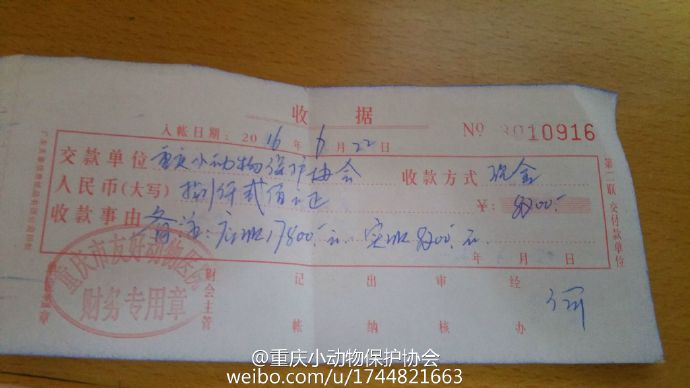 收 据
入帐日期：2016年6月22日 No 3010916
交款单位 重庆小动物保护协会 收款方式 现金
人民币（大写）捌仟贰佰元正 ¥：8200.-
收款事由 备注：应收17800.-元 实收8200.-元
年 月 日
第二联 交付款单位
重庆市友好动物医院
财务专用章
财会主管 记帐 出纳 审核 经办
@重庆小动物保护协会
weibo.com/u/1744821663